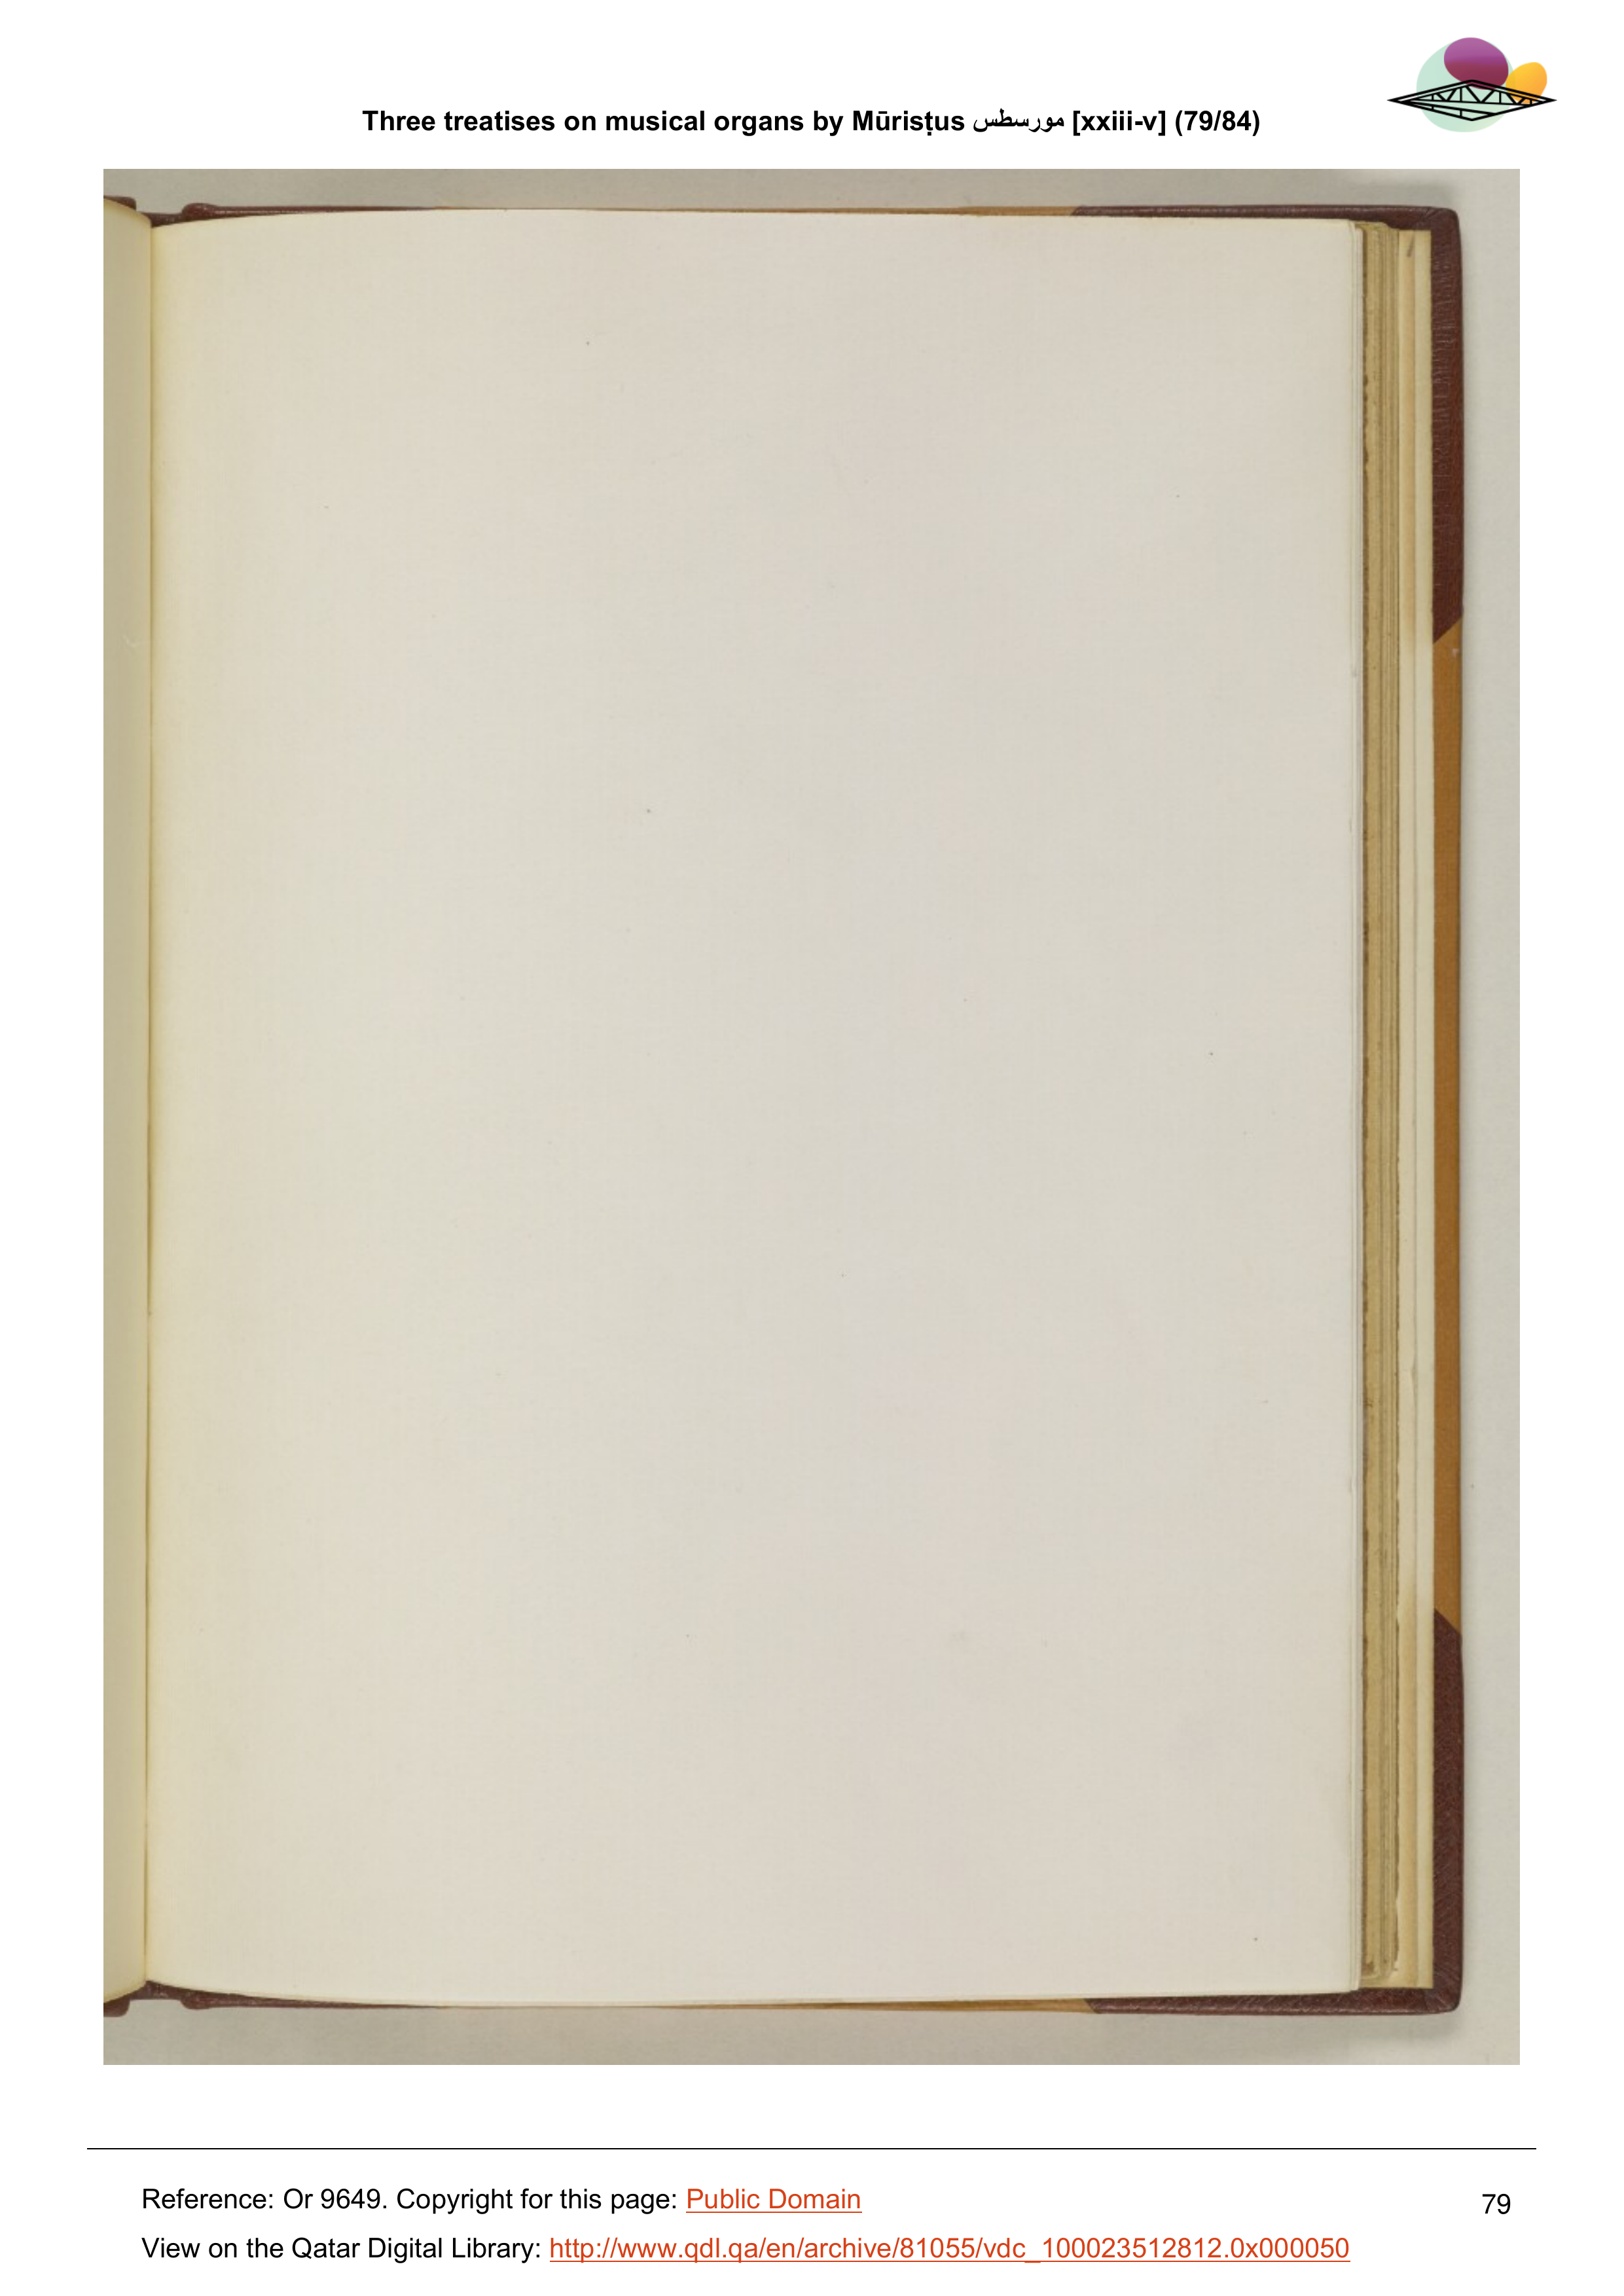 Three treatises on musical organs by Mūrisṭus مورسطس [xxiii-v] (79/84)
Reference: Or 9649. Copyright for this page: Public Domain
79
View on the Qatar Digital Library: http://www.qdl.qa/en/archive/81055/vdc_100023512812.0x000050